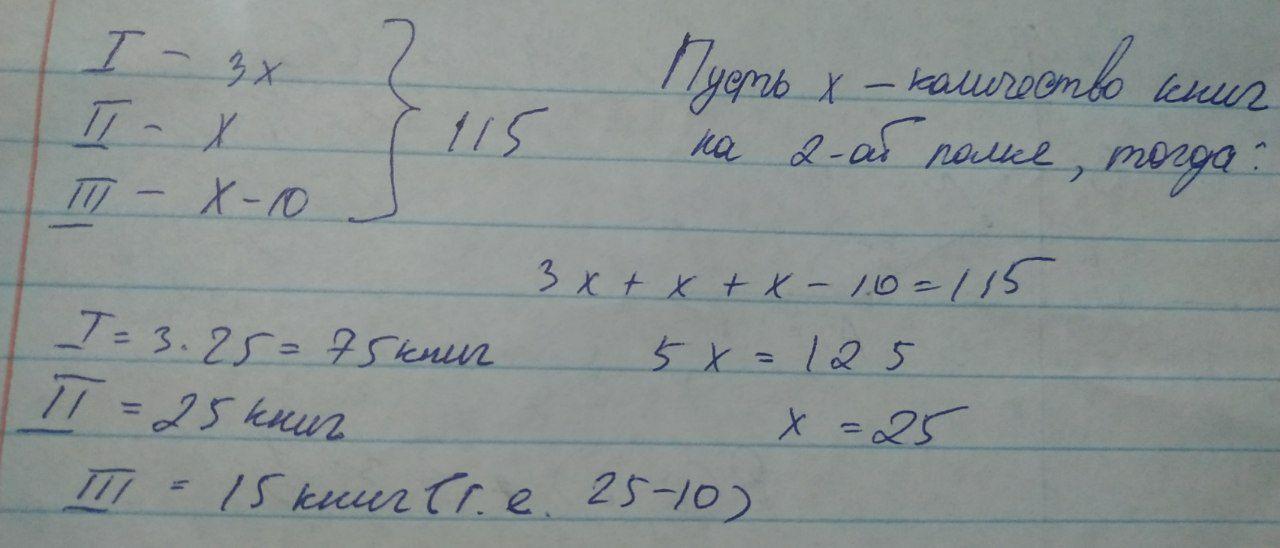 I - 3x
II - x
III - x-10
} 115
Пусть x - количество книг
на 2-ой полке, тогда:
3x + x + x - 10 = 115
I = 3·25 = 75 книг
5x = 125
II = 25 книг
x = 25
III = 15 книг (т.е. 25-10)